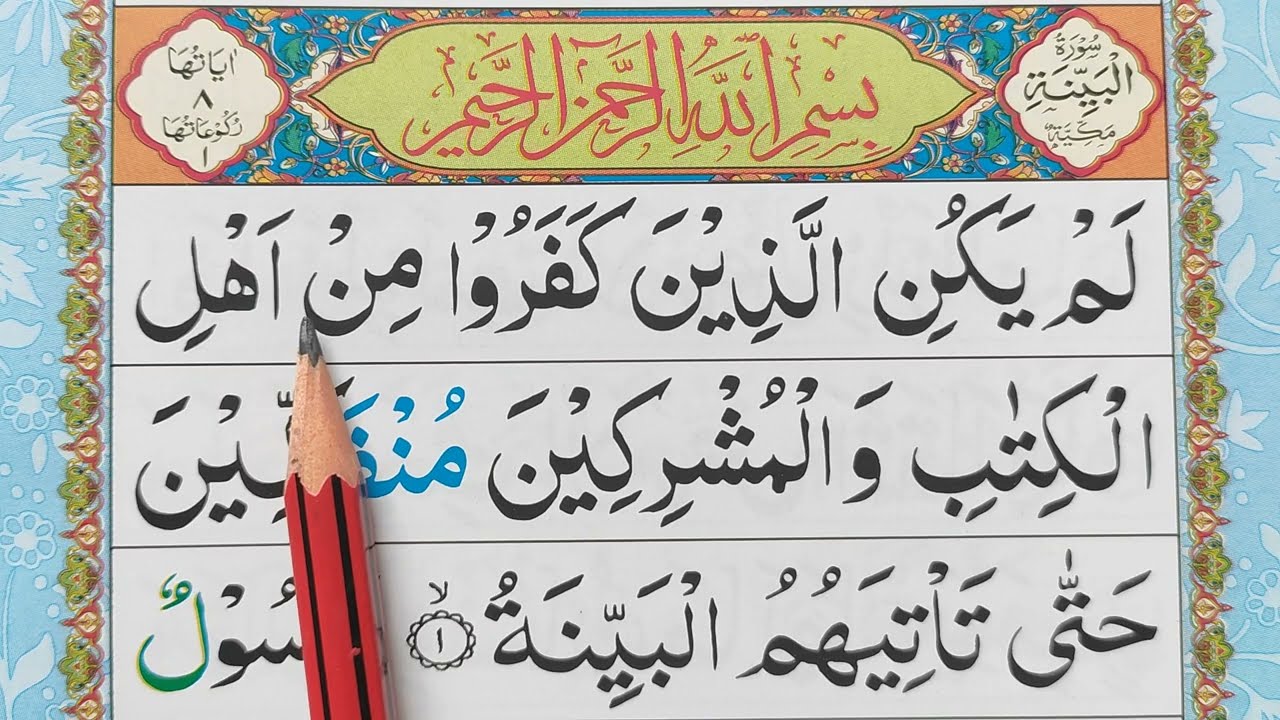 سُوْرَةُ
الْبَيِّنَةِ
مَكِّيَّةٌ
بِسْمِ اللّٰهِ الرَّحْمٰنِ الرَّحِيْمِ
اٰيَاتُهَا
٨
رُكُوْعَاتُهَا
١
لَمْ يَكُنِ الَّذِيْنَ كَفَرُوْا مِنْ اَهْلِ
الْكِتٰبِ وَالْمُشْرِكِيْنَ مُنْفَكِّيْنَ
حَتّٰى تَاْتِيَهُمُ الْبَيِّنَةُ ۙ﴿١﴾